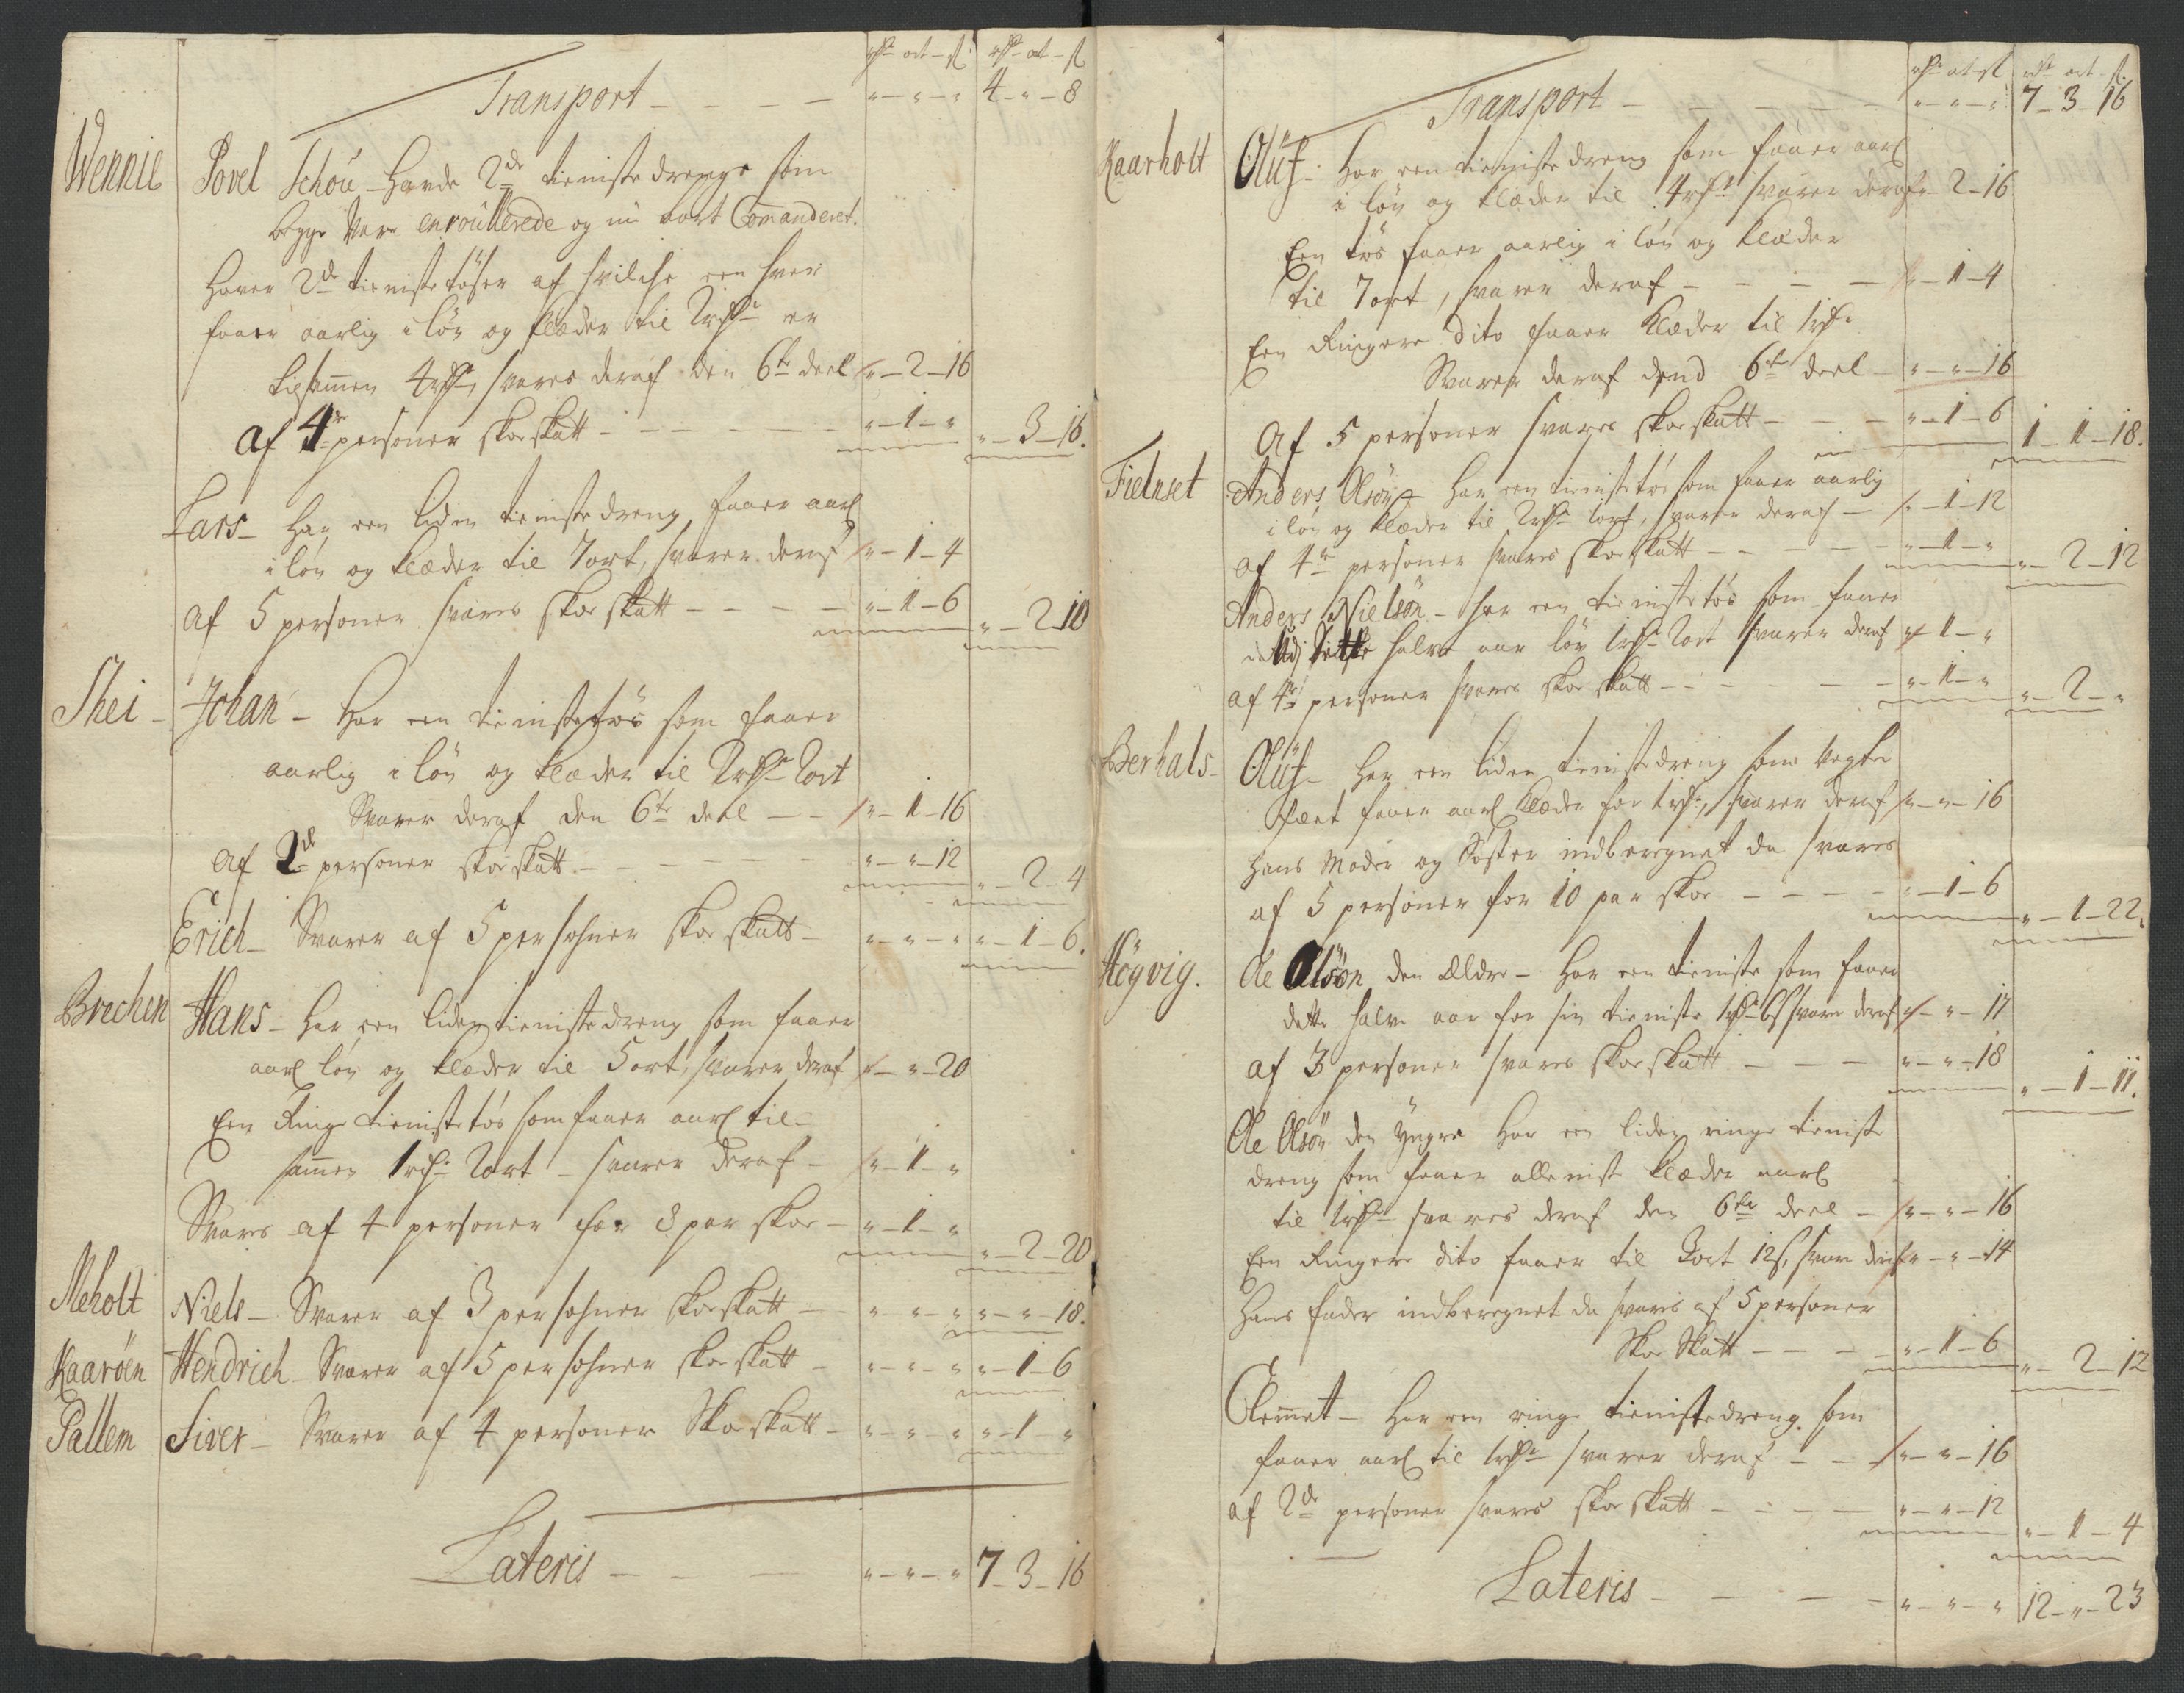 rdr ort - s rdr ort - s
Transport - - - - " - " - " 4 - " - 8
Wennie Povel Schou - Havde 2de tieniste drenge som
begge vare enroullerede og nu bort Comanderet.
Haver 2de tieniste töser af hvilche een hver
faaer aarlig i løn og klæder til 2 rdr er
tilsammen 4 rdr, svares deraf den 6te deel " - 2 - 16
Af 4re personer skoe skatt - - - - - " - 1 - " " - 3 - 16.
Lars - Har een liden tieniste dreng, faaer aarl
i løn og klæder til 7 ort, svarer deraf " - 1 - 4
Af 5 personer svares skoe skatt - - - - " - 1 - 6 " - 2 - 10
Shei - Johan - Har een tieniste tøs som faaer
aarlig i løn og klæder til 2 rdr 2 ort
Svarer deraf den 6te deel - - " - 1 - 16
Af 2de personer skoe skatt - - - - - " - " - 12 " - 2 - 4
Erich - Svarer af 5 persohner skoe skatt - " - " - " " - 1 - 6.
Brechen Hans - Har een liden tieniste dreng som faaer
aarl løn og klæder til 5 ort, svarer deraf " - " - 20
Een Ringe tieniste tøs som faaer aarl til-
sammen 1 rdr 2 ort - svarer deraf - " - 1 - "
Svares af 4 personer for 8 par skoe - " - 1 - " " - 2 - 20
Meholt Niels - Svarer af 3 persohner skoeskatt - " - " - " " - " - 18.
Kaaröen Hendrich - Svarer af 5 persohner skoe skatt - " - " - " " - 1 - 6
Pallem Siver - Svarer af 4 personer Skoe skatt - " - " - " " - 1 - "
Lateris - - - " - " - " 7 - 3 - 16
rdr ort - s rdr ort - s
Transport - - - - - " - " - " 7 - 3 - 16
Kaarholt Oluf - Har een tieniste dreng som faaer aarl
i løn og klæder til 4 rdr svarer deraf " - 2 - 16
Een tøs faaer aarlig i løn og klæder
til 7 ort, svarer deraf - - - - " - 1 - 4
Een Ringere dito faaer klæder til 1 rdr
Svarer deraf dend 6te deel - " - " - 16
Af 5 personer svares skoe skatt - - - " - 1 - 6 1 - 1 - 18.
Fielnset Anders Olsön - Har een tieniste tös som faaer aarlig
i løn og klæder til 2 rdr 1 ort, svarer deraf - " - 1 - 12
af 4re personer svares skoe skatt - - - - " - 1 - " " - 2 - 12
Anders Nielsön - har een tieniste tøs som faaer
dette halve aar løn 1 rdr 2 ort svarer deraf " - 1 - "
af 4re personer svares skoe skatt - - - - - " - 1 - " " - 2 - "
Berhals - Oluf - Har een liden tieniste dreng som
faaer aarl klæder for 1 rdr, svarer deraf " - " - 16
Hans Moder og Søster indberegnet da svares
af 5 personer for 10 par skoe - - - - " - 1 - 6 " - 1 - 22.
Högvig. Ole Olsön den Ældre - Har een tieniste som faaer
dette halve aar for sin tieniste 1 rdr 6 s svarer deraf " - " - 17
af 3 personer svares skoe skatt - - - " - " - 18 " - 1 - 11.
Ole Olsön den Yngre Har een liden ringe tieniste
dreng som faaer alleniste klæder aarl
til 1 rdr svares deraf den 6te deel - " - " - 16
Een Ringere dito faaer til 3 ort 12 s, svarer deraf " - " - 14
Hans fader indberegnet da svaris af 5 personer
Skoe Skatt - - - " - 1 - 6 " - 2 - 12
Clemmet - Har een ringe tieniste dreng som
faaer aarl til 1 rdr svarer deraf - - " - " - 16
af 2de personer svares skoe skatt - - - - " - " - 12 " - 1 - 4
Lateris - - - - " - " - " 12 - " - 23